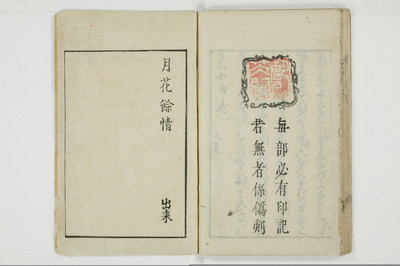 每部必有印記
若無者係偽刻
月花餘情
出来